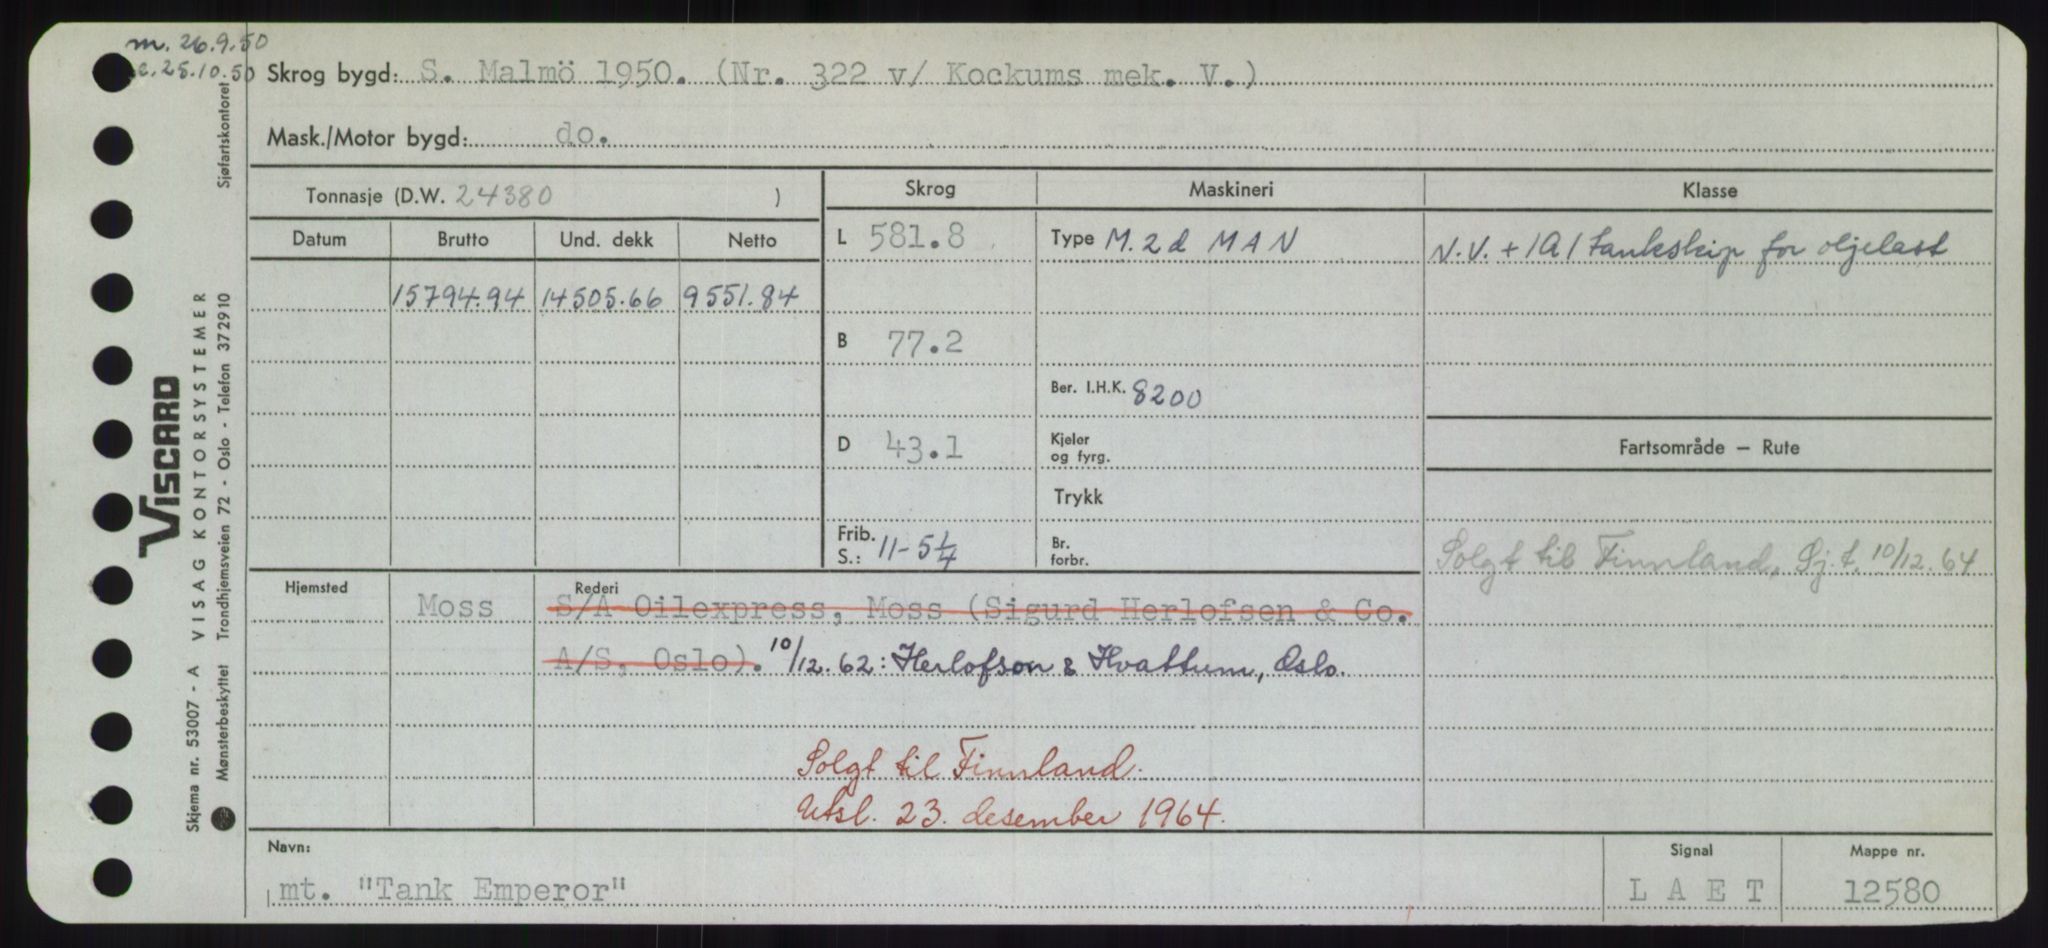 m. 26.9.50
e. 25.10.50
Skrog bygd: S. Malmö 1950. (Nr. 322 v/ Kockums mek. V.)
Mask./Motor bygd: do.
Tonnasje (D.W. 24380 )
Skrog
Maskineri
Klasse
Datum Brutto Und. dekk Netto
L 581.8
Type M. 2 d MAN
N.V. + 1A1 tankskip for oljelast
15794.94 14505.66 9551.84
B 77.2
Ber. I.H.K. 8200
D 43.1
Kjeler
og fyrg.
Fartsområde – Rute
Trykk
Frib.
S.: 11-5 1/4
Br.
forbr.
Solgt til Finnland, Sj.t. 10/12.64
Hjemsted
Rederi
Moss S/A Oilexpress, Moss (Sigurd Herlofsen & Co.
A/S, Oslo). 10/12.62: Herlofson & Hvattum, Oslo.
Solgt til Finnland.
Utsl. 23. desember 1964.
Navn:
Signal
Mappe nr.
mt. "Tank Emperor"
L A E T
12580
VISCARD
Skjema nr. 53007 - A VISAG KONTORSYSTEMER
Mønsterbeskyttet Trondhjemsveien 72 - Oslo - Telefon 372910
Sjøfartskontoret